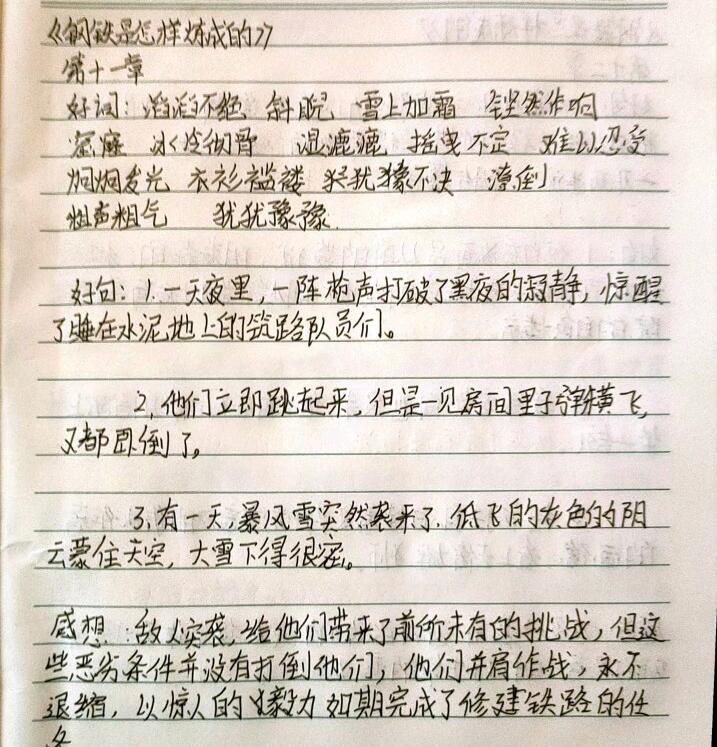 《钢铁是怎样炼成的》
第十一章
好词：滔滔不绝 斜睨 雪上加霜 铿然作响
窑座 冰冷彻骨 湿漉漉 摇曳不定 难以忍受
炯炯发光 衣衫褴褛 犹豫不决 潦倒
粗声粗气 犹犹豫豫
好句：1.一天夜里，一阵枪声打破了黑夜的寂静，惊醒
了睡在水泥地上的筑路队员们。
2.他们立即跳起来，但是一见房间里子弹横飞，
又都卧倒了。
3.有一天，暴风雪突然袭来了.低飞的灰色的阴
云蒙住天空，大雪下得很密。
感想：敌人突袭，给他们带来了前所未有的挑战，但这
些恶劣条件并没有打倒他们，他们并肩作战，永不
退缩，以惊人的毅力如期完成了修建铁路的任
务